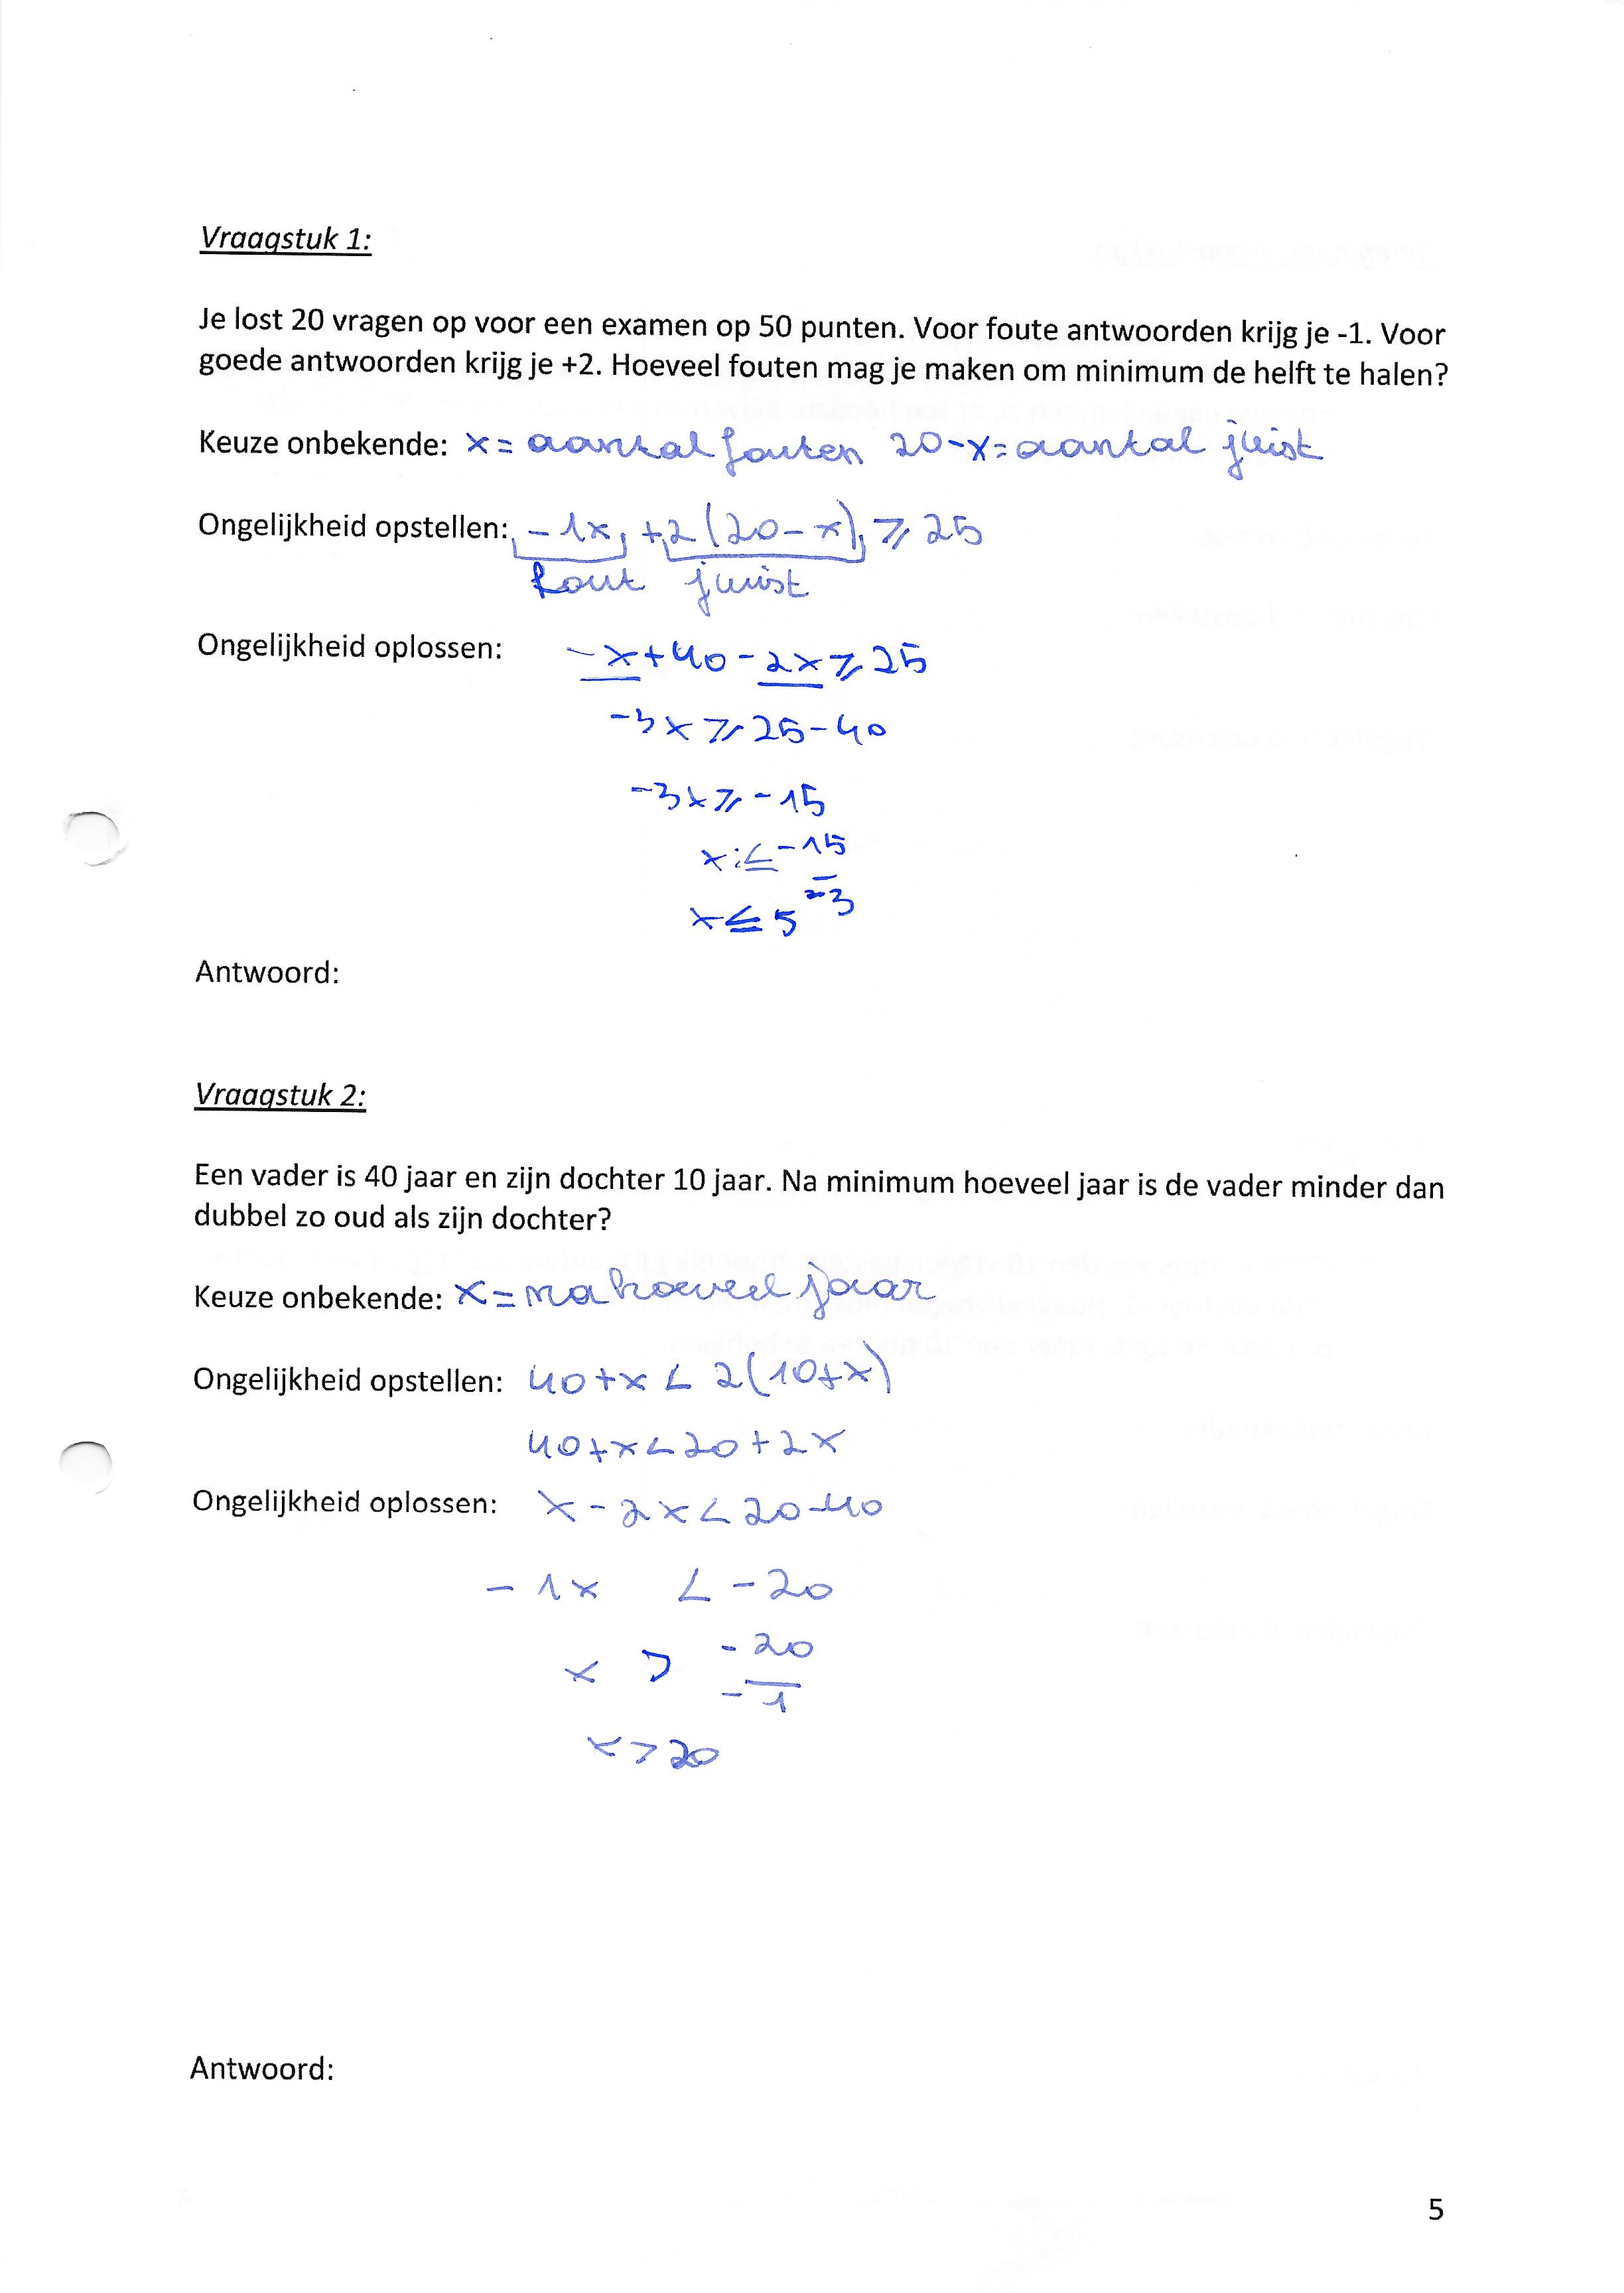 Vraagstuk 1:
Je lost 20 vragen op voor een examen op 50 punten. Voor foute antwoorden krijg je -1. Voor
goede antwoorden krijg je +2. Hoeveel fouten mag je maken om minimum de helft te halen?
Keuze onbekende: x = aantal fouten 20-x = aantal juist
Ongelijkheid opstellen: -1x +2(20-x) ⩾ 25
fout juist
Ongelijkheid oplossen: -x+40-2x ⩾ 25
-3x ⩾ 25-40
-3x ⩾ -15
x ≤ -15
-3
x ≤ 5
Antwoord:
Vraagstuk 2:
Een vader is 40 jaar en zijn dochter 10 jaar. Na minimum hoeveel jaar is de vader minder dan
dubbel zo oud als zijn dochter?
Keuze onbekende: x = na hoeveel jaar
Ongelijkheid opstellen: 40+x < 2(10+x)
40+x < 20+2x
Ongelijkheid oplossen: x-2x < 20-40
-1x < -20
x > -20
-1
x > 20
Antwoord:
5